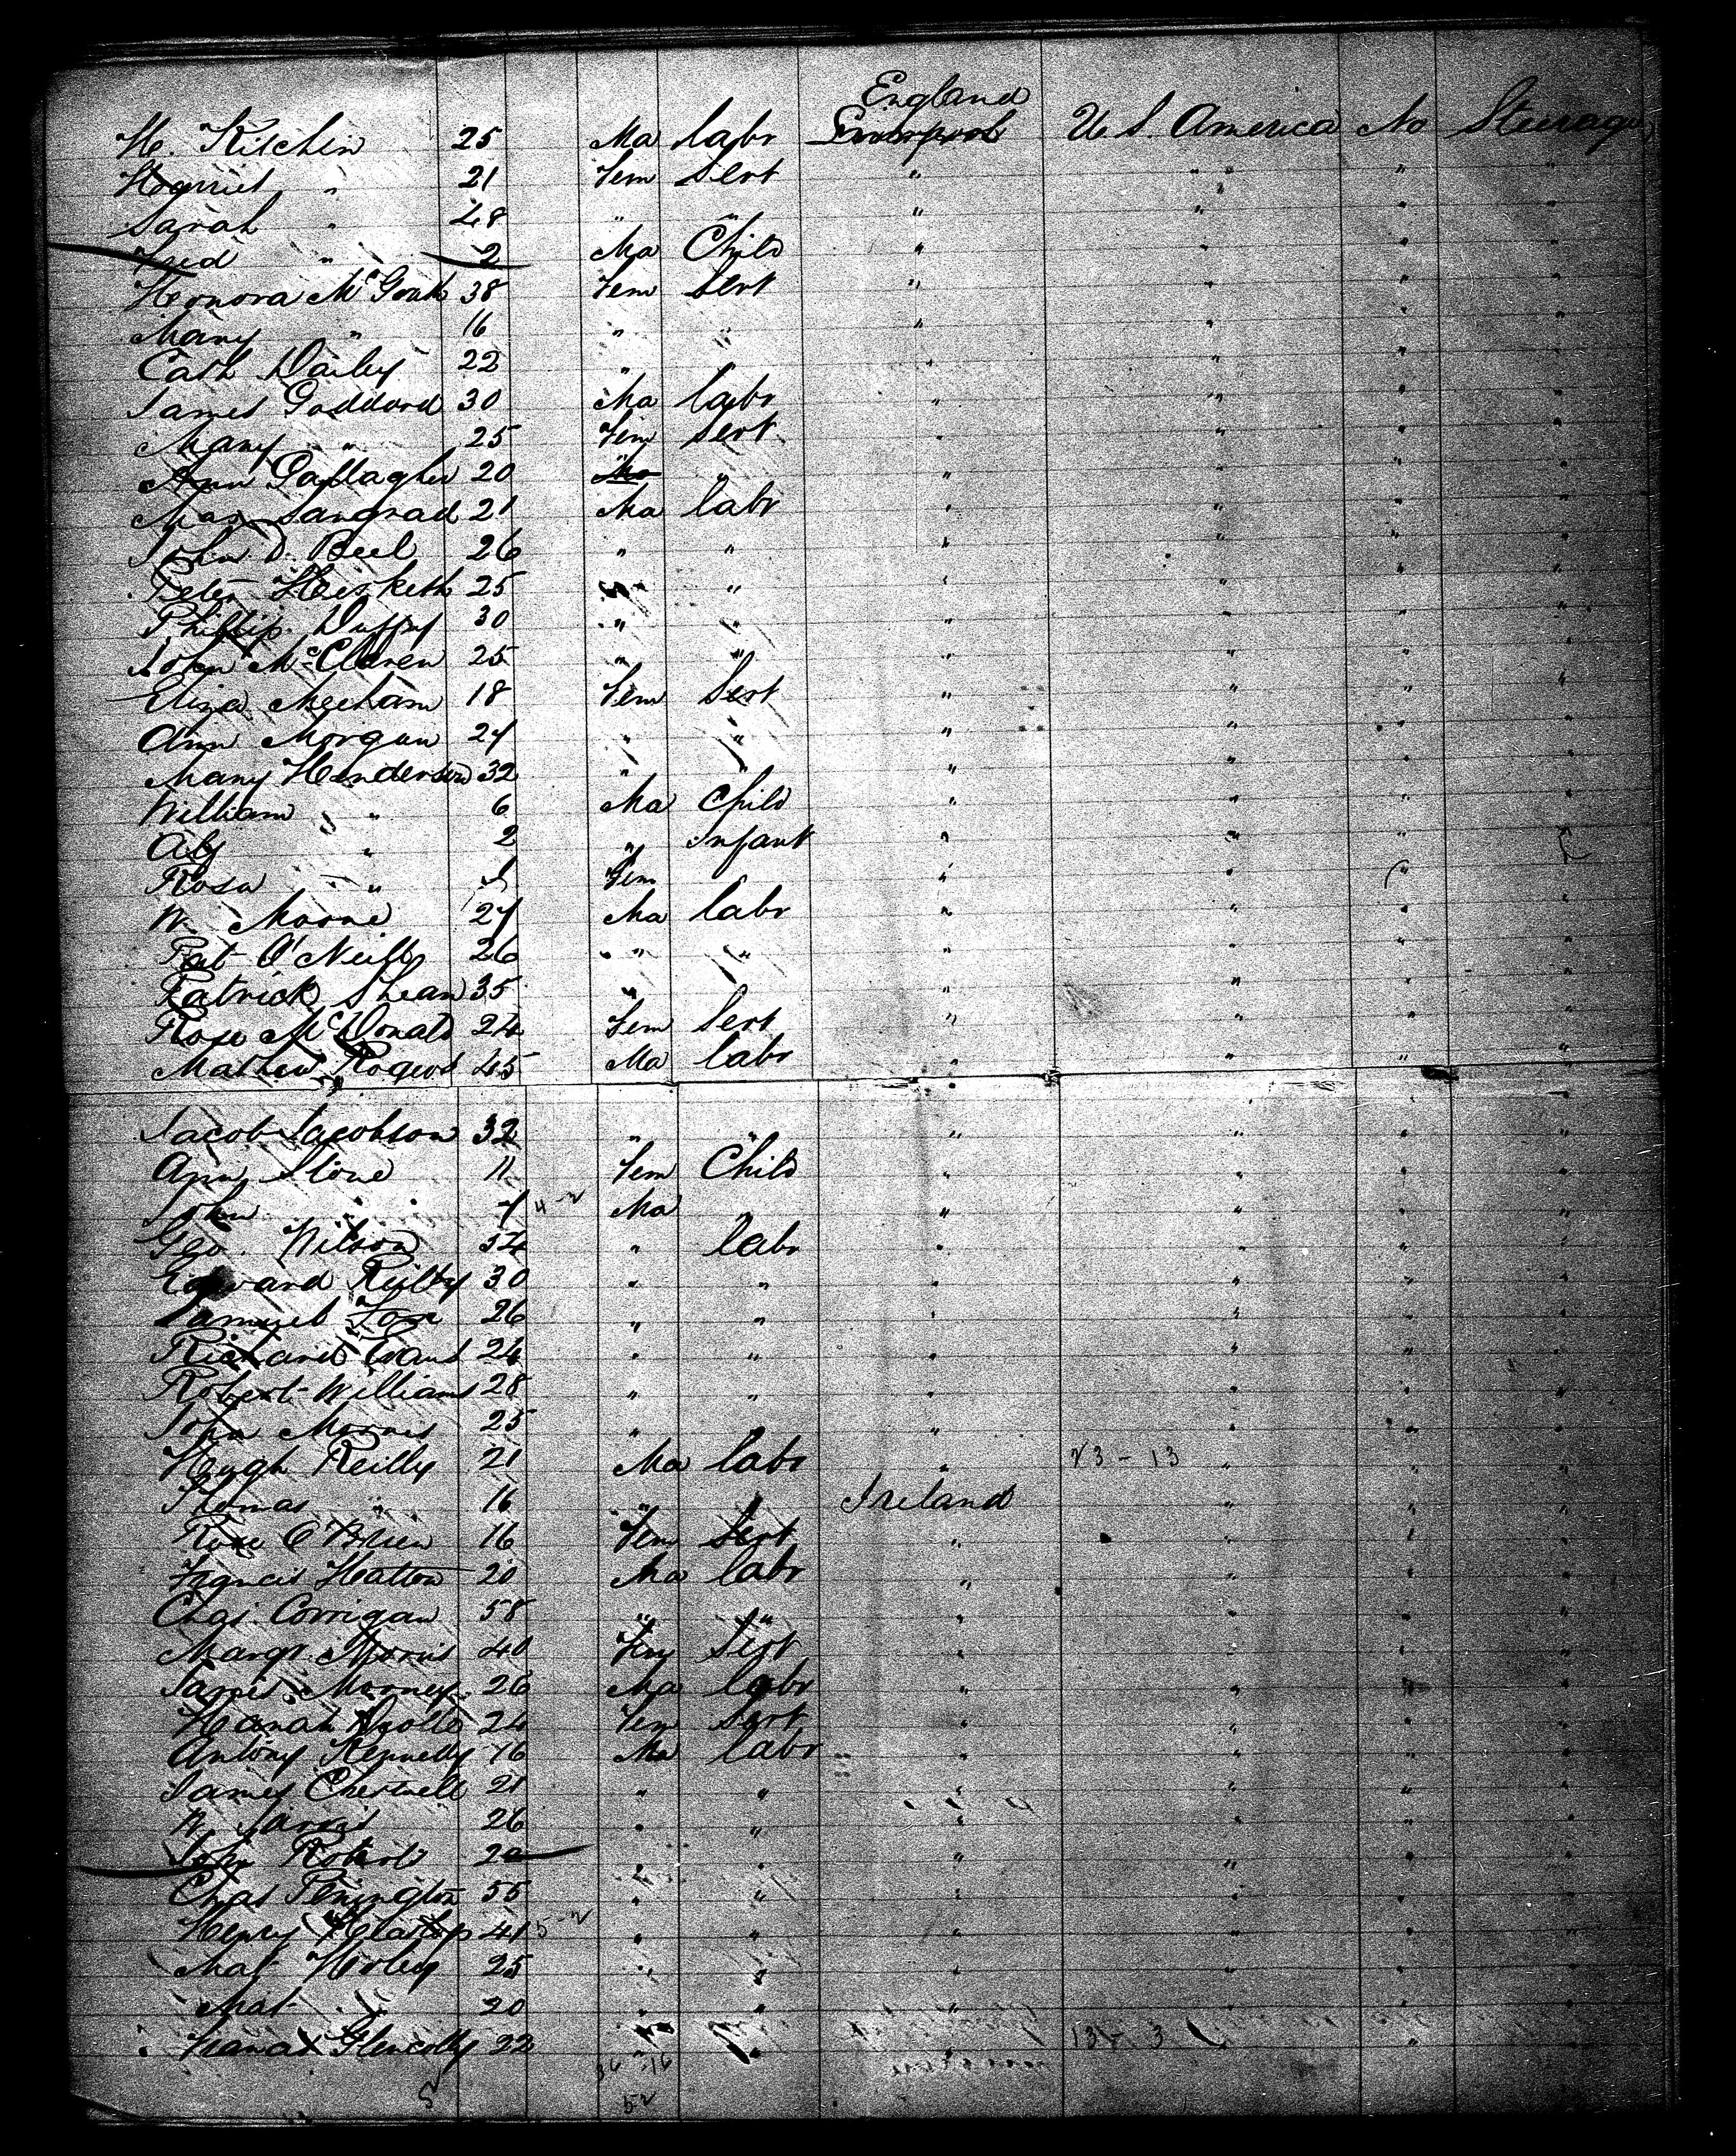 England
H. Kitchin 25 Ma labr Liverpool U S. America No Steerage
Harriet " 21 Fem Sert " " " "
Sarah " 48 " " " " " "
Fred " 2 Ma Child " " " "
Honora McGrath 38 Fem Sert " " " "
Mary " 16 " " " " " "
Cath Dailey 22 " " " " "
James Goddard 30 Ma labr " " " "
Mary " 25 Fem Sert " " " "
Ann Gallagher 20 " " " " " "
Max 21 Ma labr " " " "
John D. Beel 26 " " " " " "
Peter Hesketh 25 " " " " " "
Phillip Duffy 30 " " " " "
John McClaren 25 " " " " " "
Eliza Meeham 18 Fem Sert " " " "
Ann Morgan 27 " " " " " "
Mary Henderson 32 " " " " " "
William " 6 Ma Child " " " "
Alf " 2 " Infant " " " "
Rosa " 1 Fem " " "
W. Moore 27 Ma labr " " " "
Pat O'Neill 26 " " " " " "
Patrick Shean 35 " " " " "
Rose McDonald 24 Fem Sert " " " "
Mathew Rogers 45 Ma labr " " " "
Jacob Jacobson 32 " " " " " "
Ann Stone 11 Fem Child " " " "
John " 7 4-2 Ma " " " " "
Geo. Wilson 54 " labr " " " "
Edward Reilly 30 " " " " " "
Samuel Fox 26 " " " " "
Richard Evans 24 " " " " " "
Robert Williams 28 " " " " " "
John Morris 25 " " " " "
Hough Reilly 21 Ma labr " 23-13 " " "
Thomas " 16 " " Ireland " " "
Rose O'Brien 16 Fem Sert " " " "
Francis Hatton 20 Ma labr " " " "
Chas. Corrigan 58 " " " " " "
Margt. Morris 40 Fem Sert " " " "
James Morney 26 Ma labr " " " "
Hanah 24 Fem Sert " " " "
Antony Kennelly 16 Ma labr " " " "
James Cherwell 21 " " " " " "
W. 26 " " " " " "
John Roberts 20 " " " " " "
Chas Penington 55 " " " " " "
Henry Heslop 41 5-2 " " " " " "
Mat Horley 25 " " " " " "
Mat " 20 " " " " " "
22 " " " "
52